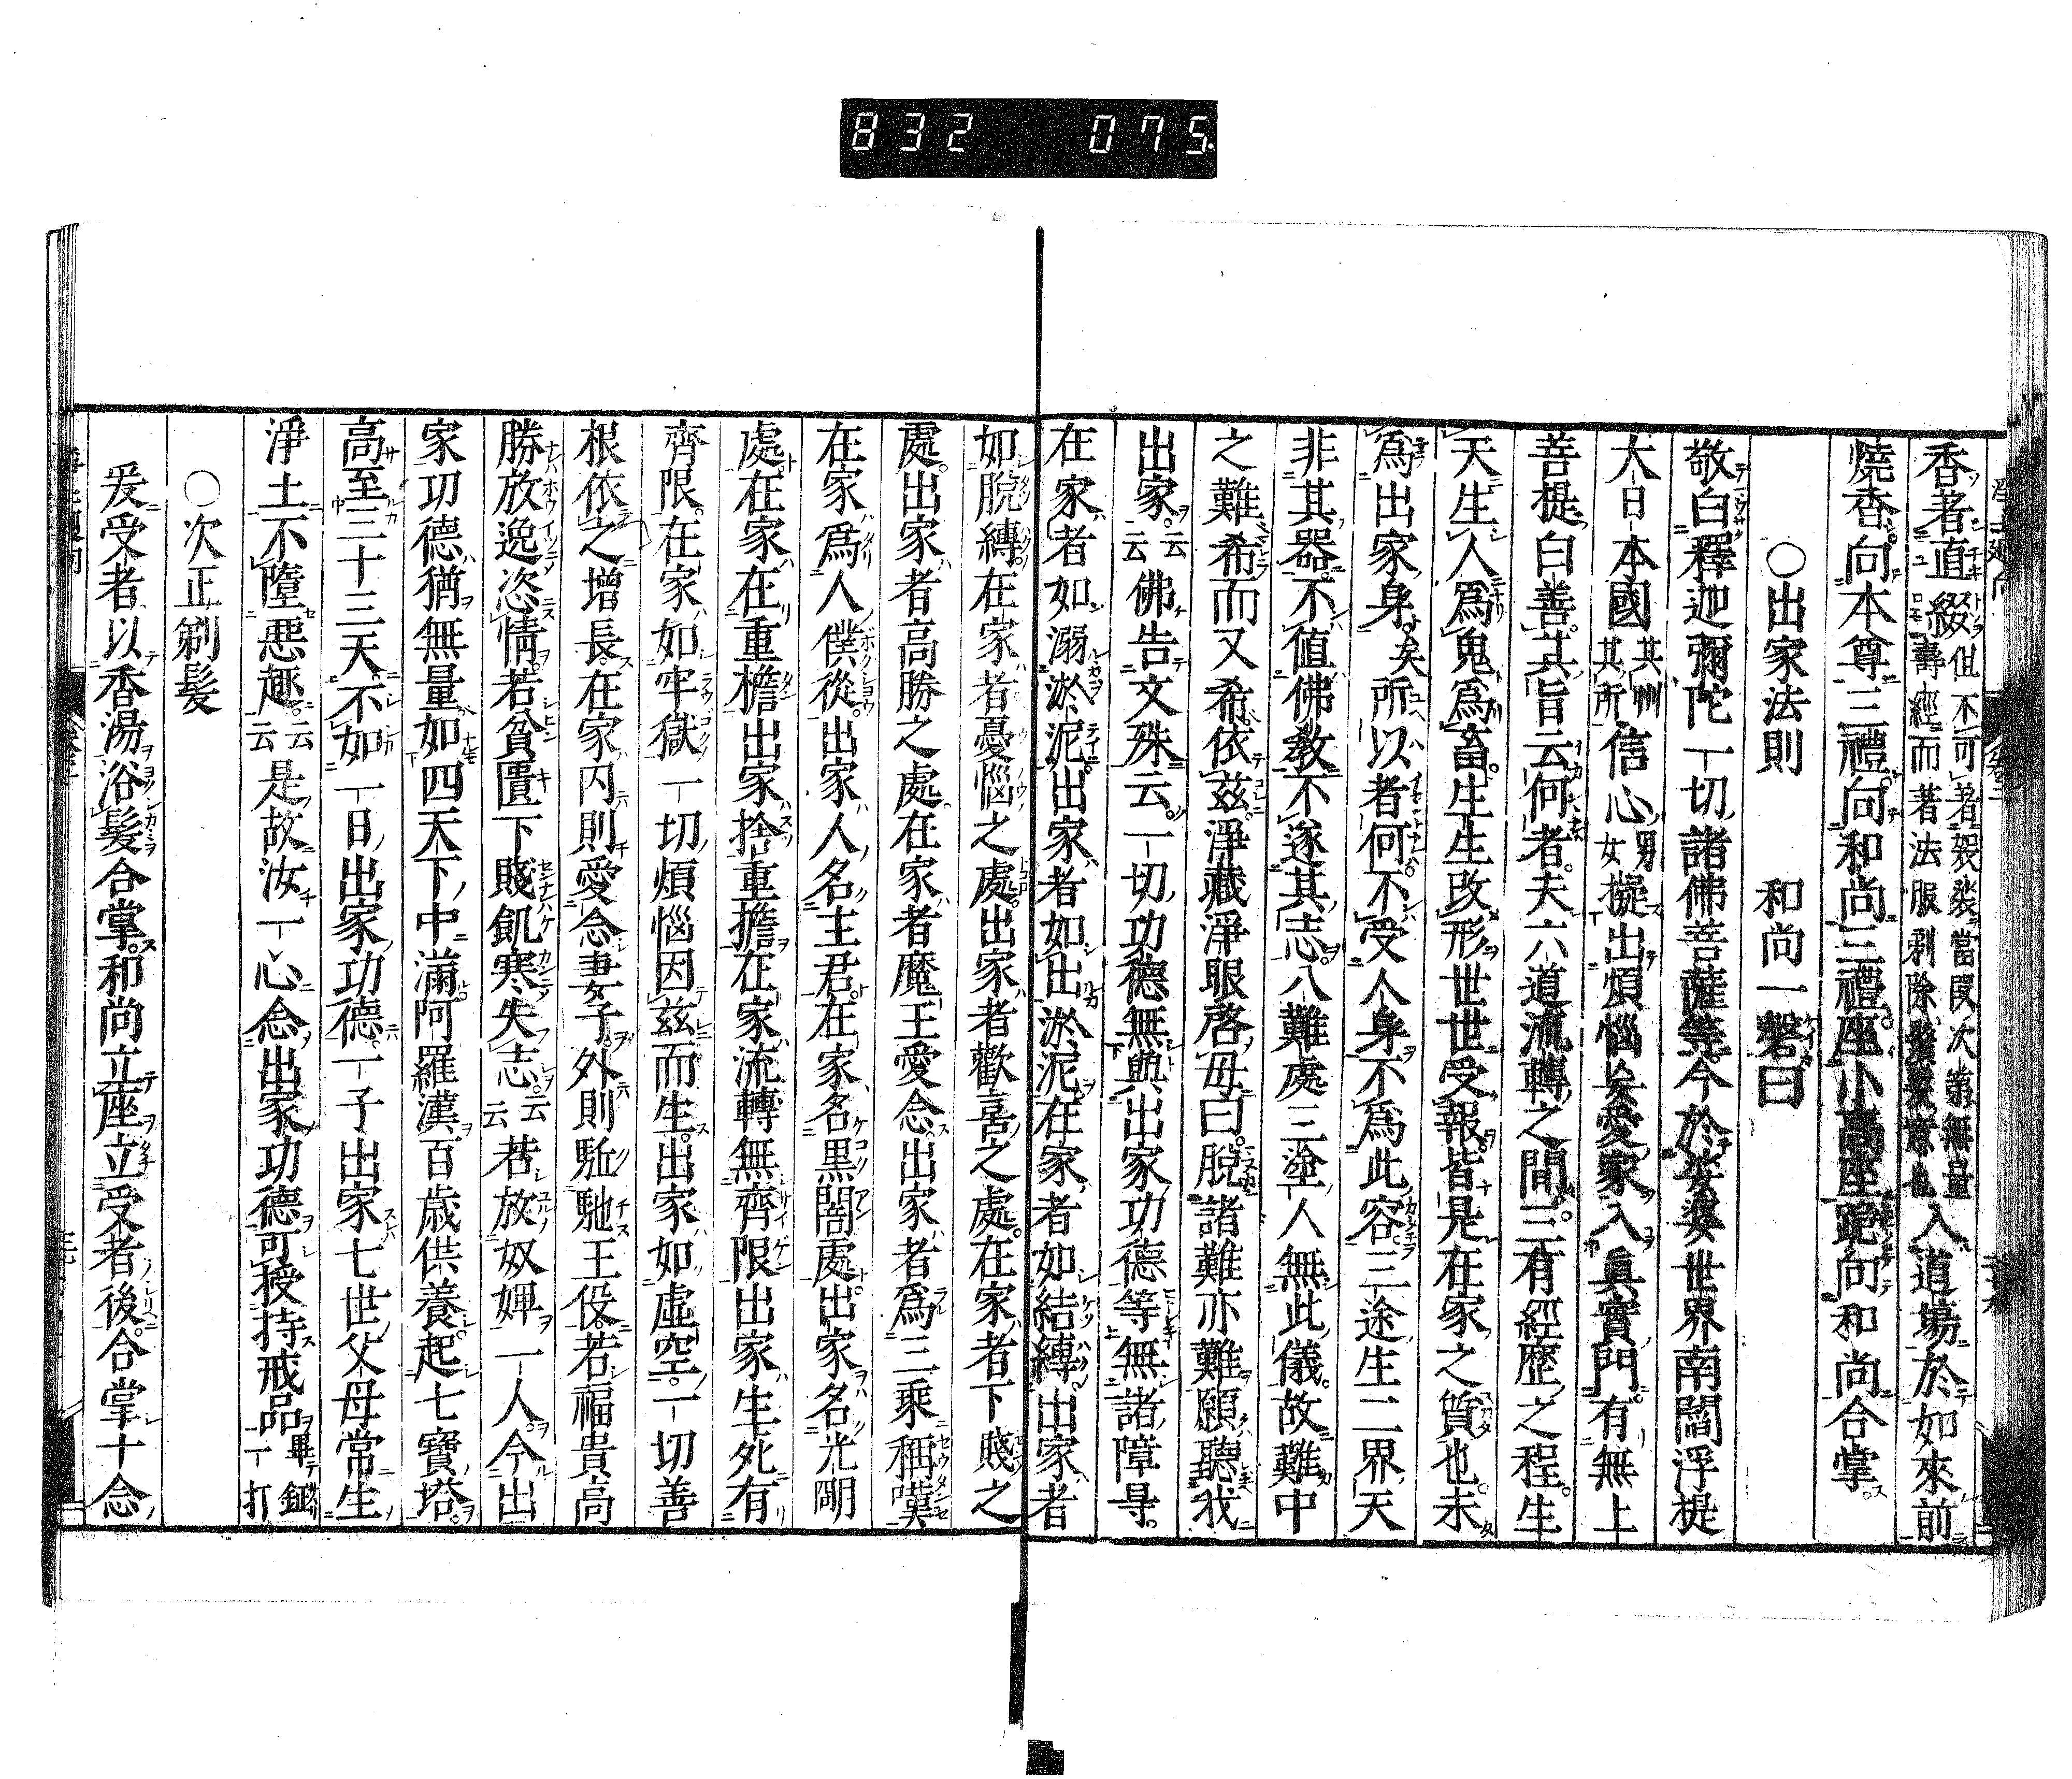 832 075
香著直綴但不可著袈裟當段次第無量壽經而著法服剃除鬚髮意也入道場於如來前
燒香向本尊三禮向和尚三禮座小高座跪向和尚合掌
○出家法則 和尚一磬曰
敬白釋迦彌陀一切諸佛菩薩等今於娑婆世界南閻浮提
大日本國其州其所信心男女擬出煩惱矣愛家入眞實門有無上
菩提曰善其旨云何者夫六道流轉之間三有經歷之程生
天生人爲鬼爲畜生生改形世世受報皆是在家之質也未
爲出家身矣所以者何不受人身不爲此容三途生二界天
非其器不值佛教不遂其志八難處三塗人無此儀故難中
之難希而又希依茲淨藏淨眼啓母曰脫諸難亦難願聽我
出家云云佛告文殊云一切功德無與出家功德等無諸障㝵
在家者如溺淤泥出家者如出淤泥在家者如結縛出家者
如脫縛在家者憂惱之處出家者歡喜之處在家者下賤之
處出家者高勝之處在家者魔王愛念出家者爲三乘稱嘆
在家爲人僕從出家人名主君在家名黒闇處出家名光明
處在家在重檐出家捨重擔在家流轉無齊限出家生死有
齊限在家如牢獄一切煩惱因茲而生出家如虛空一切善
根依之增長在家內則愛念妻子外則馳王役若福貴高
勝放逸恣情若貧匱下賤飢寒失志云云若放奴婢一人今出
家功德猶無量如四天下中滿阿羅漢百歳供養起七寶塔
高至三十三天不如一日出家功德一子出家七世父母常生
淨土不墮惡趣云云是故汝一心念出家功德可授持戒品畢鉦一打
○次正剃髮
爰受者以香湯浴髮合掌和尚立座立受者後合掌十念